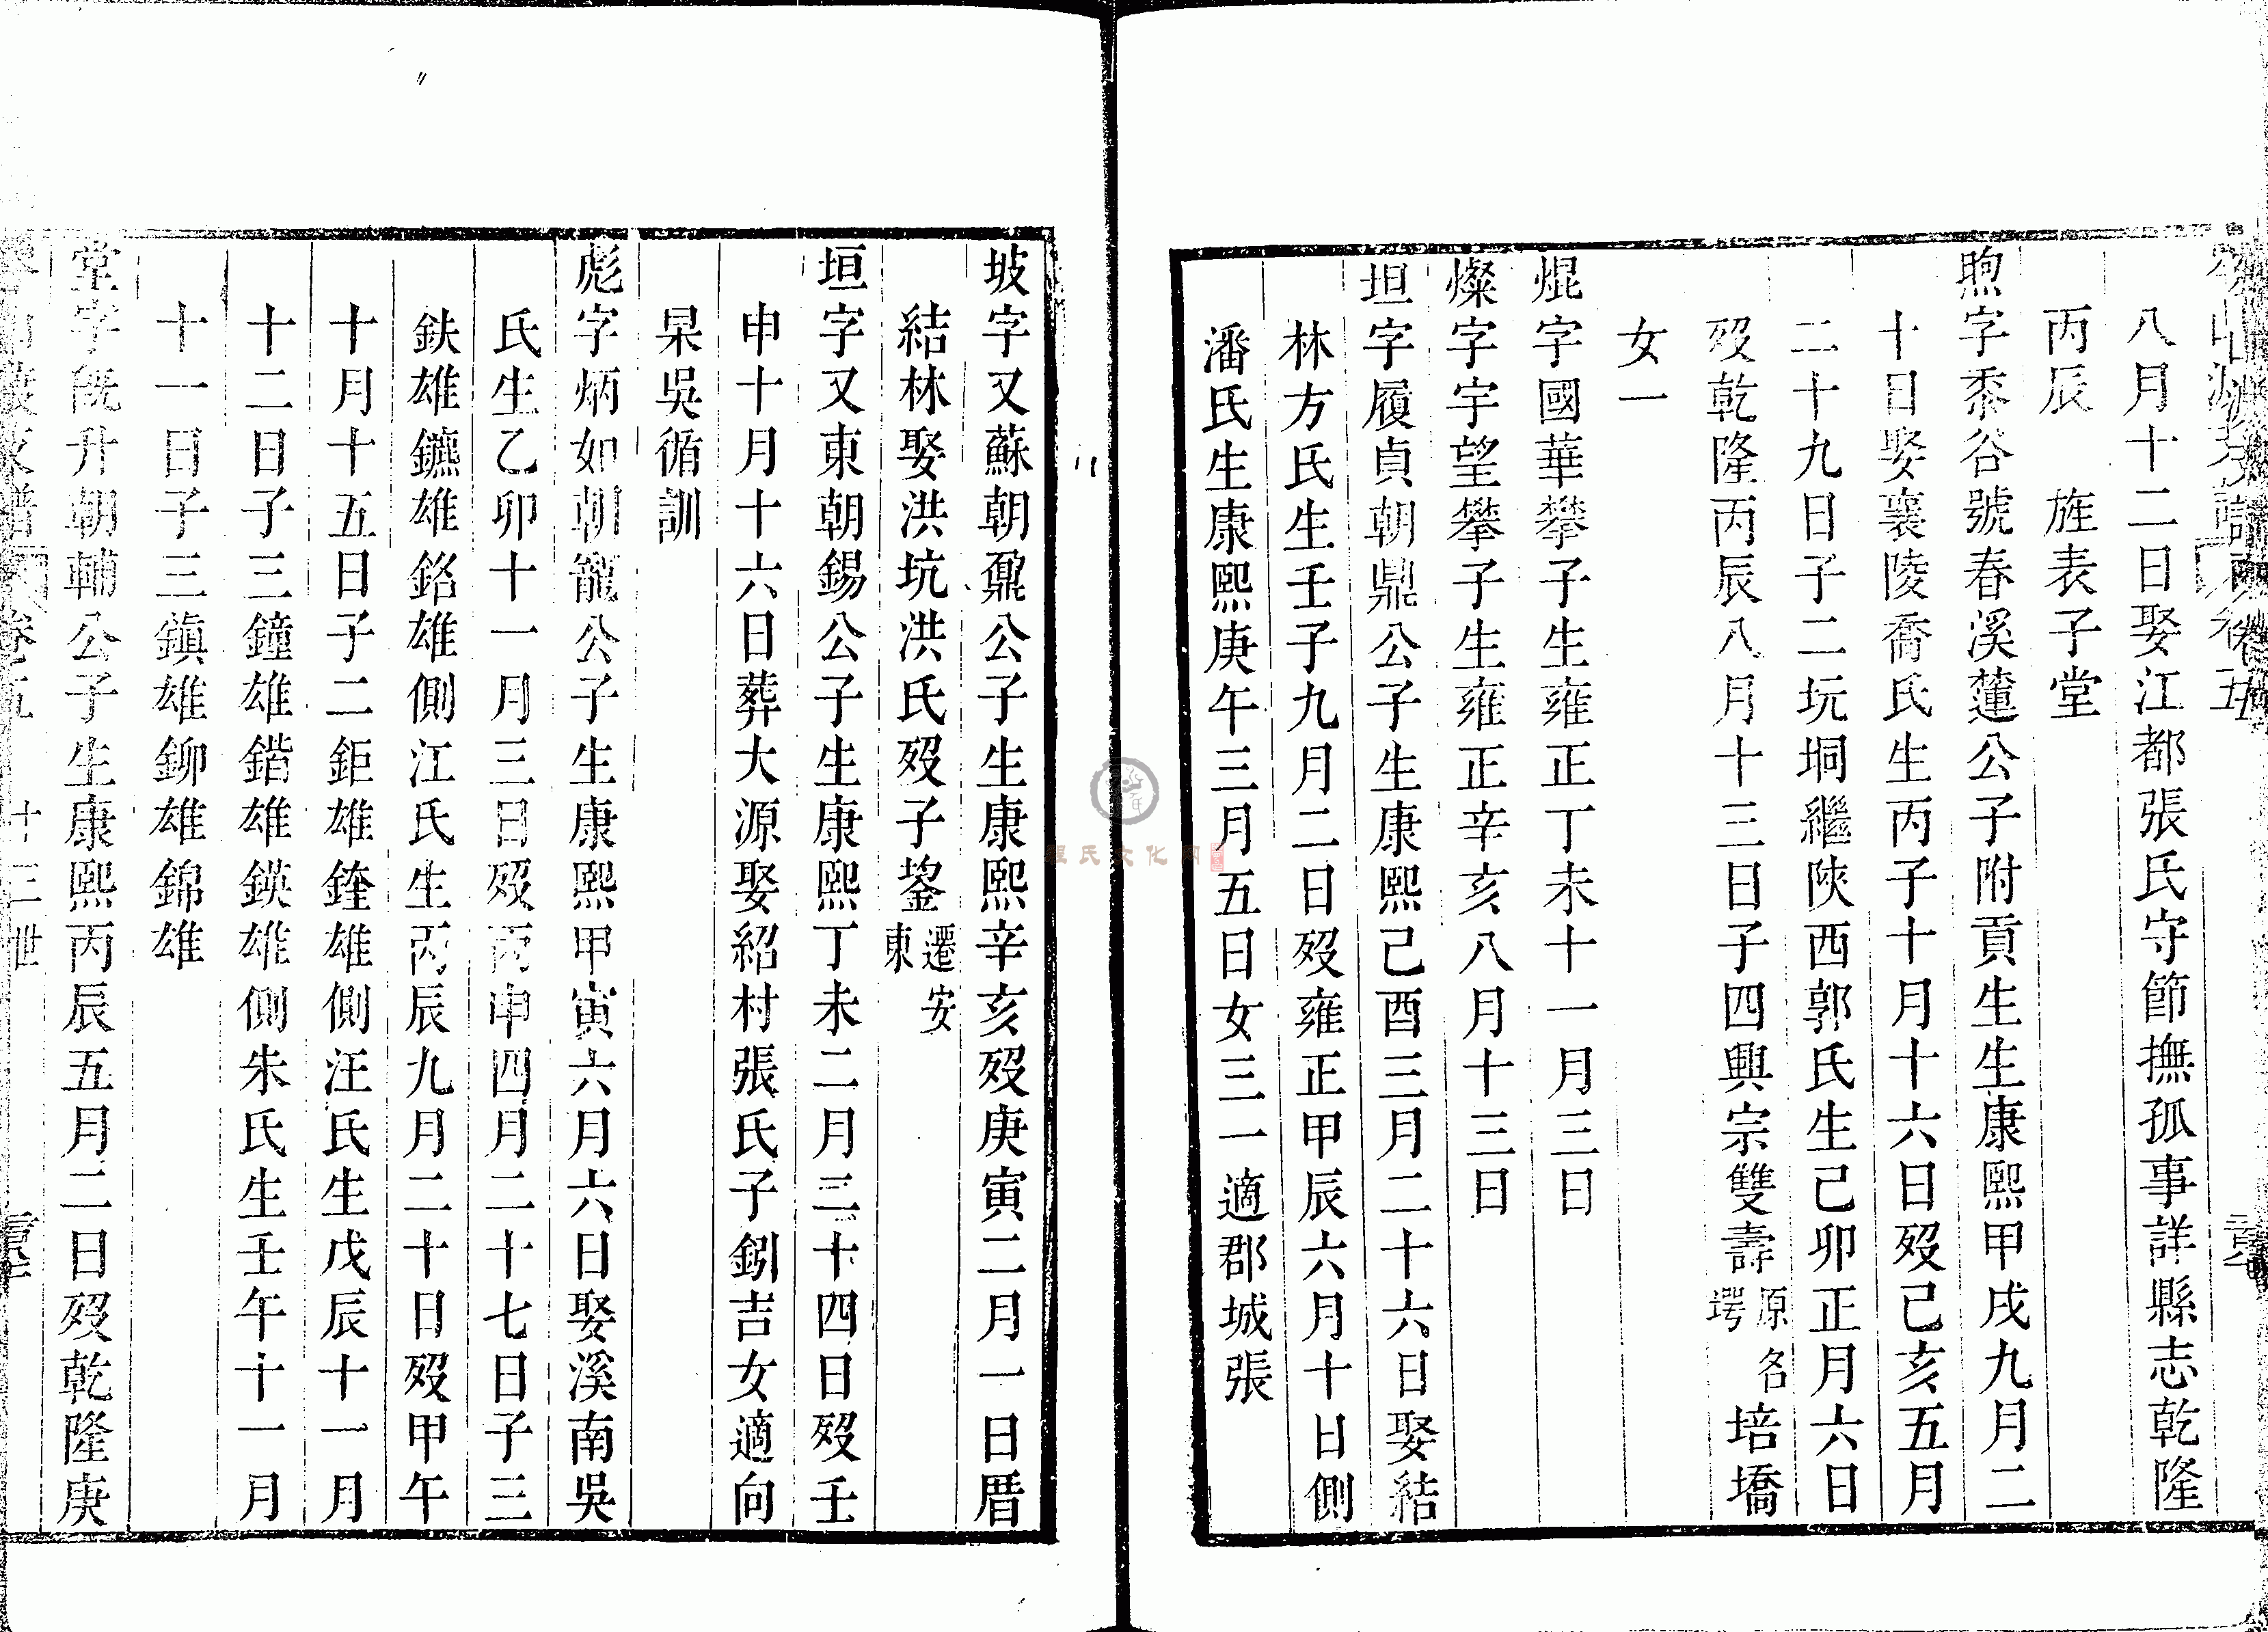 八月十二日娶江都張氏守節撫孤事詳縣志乾隆
丙辰 旌表子堂
煦字黍谷號春溪蓮公子附貢生生康熙甲戌九月二
十日娶襄陵喬氏生丙子十月十六日歿己亥五月
二十九日子二玩垌繼陝西郭氏生己卯正月六日
歿乾隆丙辰八月十三日子四興宗雙壽原名堮培墧
女一
焜字國華攀子生雍正丁未十一月三日
燦字宇望攀子生雍正辛亥八月十三日
坦字履貞朝鼎公子生康熙己酉三月二十六日娶結
林方氏生壬子九月二日歿雍正甲辰六月十日側
潘氏生康熙庚午三月五日女三一適郡城張
坡字又蘇朝鼐公子生康熙辛亥歿庚寅二月一日厝
結林娶洪坑洪氏歿子鋆遷安東
垣字又東朝錫公子生康熙丁未二月二十四日歿壬
申十月十六日葬大源娶紹村張氏子釧吉女適向
杲吳循訓
彪字炳如朝寵公子生康熙甲寅六月六日娶溪南吳
氏生乙卯十一月三日歿丙申四月二十七日子三
鈇雄鑣雄銘雄側江氏生丙辰九月二十日歿甲午
十月十五日子二鉅雄錴雄側汪氏生戊辰十一月
十二日子三鐘雄鍇雄鍈雄側朱氏生壬午十一月
十一日子三鎮雄鉚雄錦雄
堂字旣升朝輔公子生康熙丙辰五月二日歿乾隆庚
卷五 十三世